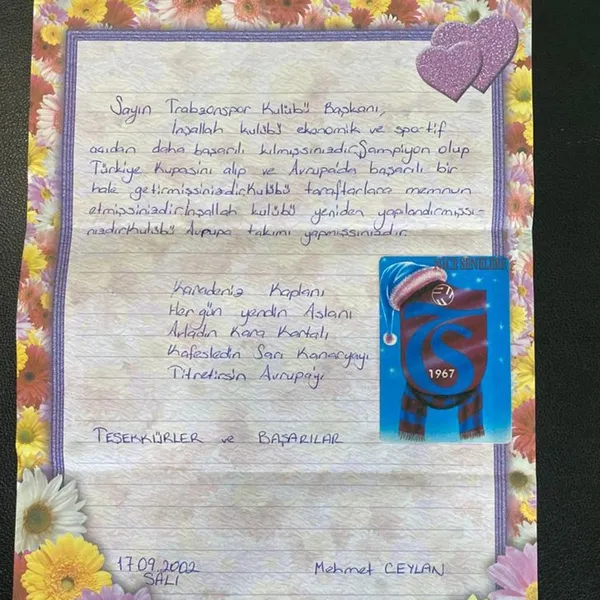 Sayın Trabzonspor Kulübü Başkanı,
İnşallah kulübü ekonomik ve sportif
açıdan daha başarılı kılmışsınızdır.Şampiyon olup
Türkiye Kupasını alıp ve Avrupa'da başarılı bir
hale getirmişsinizdir.Kulübü taraftarlara memnun
etmişsinizdir.İnşallah kulübü yeniden yapılandırmışsı-
nızdır.Kulübü Avrupa takımı yapmışsınızdır.
Karadeniz Kaplanı
Her gün yendin Aslanı
Avladın Kara Kartalı
Kafesledin Sarı Kanaryayı
Titretirsin Avrupa'yı
TS
1967
TEŞEKKÜRLER ve BAŞARILAR
17.09.2002
SALI
Mehmet CEYLAN